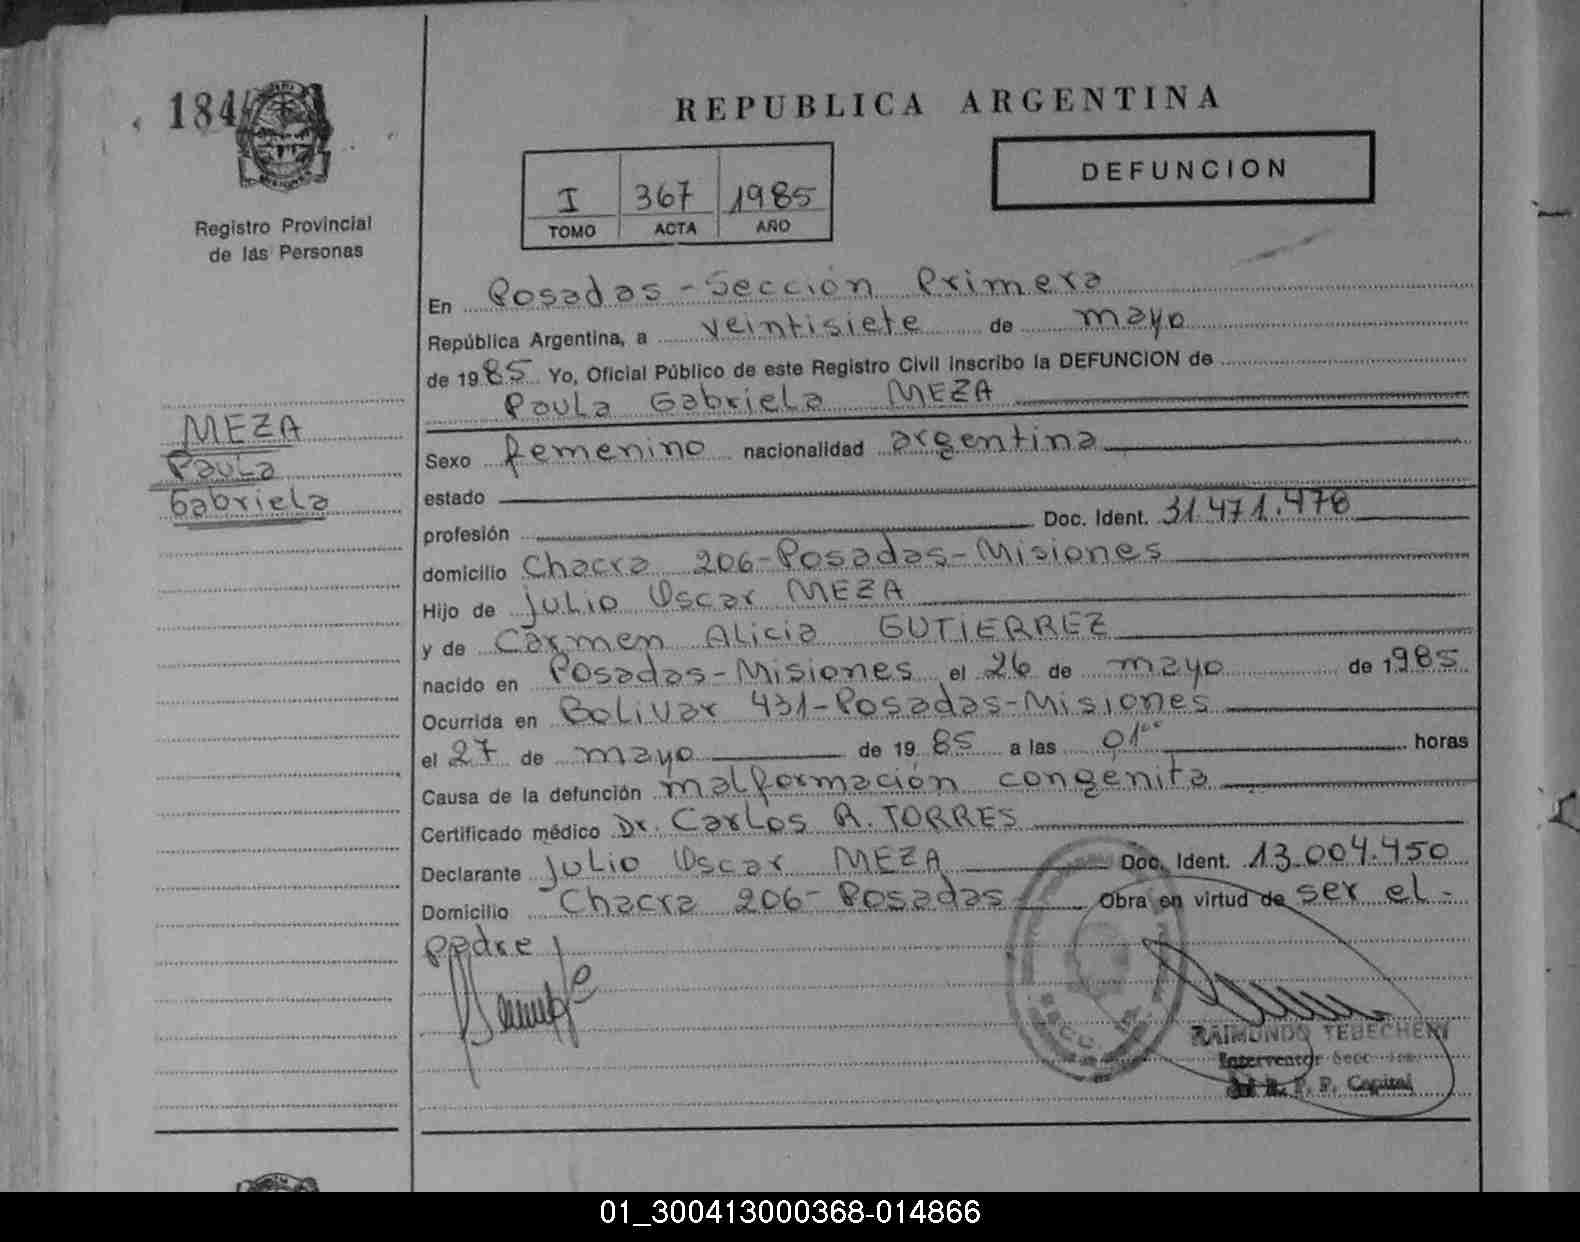 184
Registro Provincial
de las Personas
MEZA
Paula
Gabriela
REPUBLICA ARGENTINA
I 367 1985
TOMO ACTA AÑO
DEFUNCION
En Posadas - Sección Primera
República Argentina, a veintisiete de mayo
de 1985 Yo, Oficial Público de este Registro Civil inscribo la DEFUNCION de
Paula Gabriela MEZA
Sexo femenino nacionalidad argentina
estado
profesión Doc. Ident. 31.471.478
domicilio Chacra 206-Posadas-Misiones
Hijo de Julio Oscar MEZA
y de Carmen Alicia GUTIERREZ
nacido en Posadas-Misiones el 26 de mayo de 1985
Ocurrida en Bolivar 431-Posadas-Misiones
el 27 de mayo de 1985 a las 01°° horas
Causa de la defunción malformación congénita
Certificado médico Dr. Carlos A. TORRES
Declarante Julio Oscar MEZA Doc. Ident. 13.004.450
Domicilio Chacra 206- Posadas Obra en virtud de ser el -
padre
RAIMUNDO TEBECHERY
Interventor Secc.
R. P. P. Capital
01_300413000368-014866